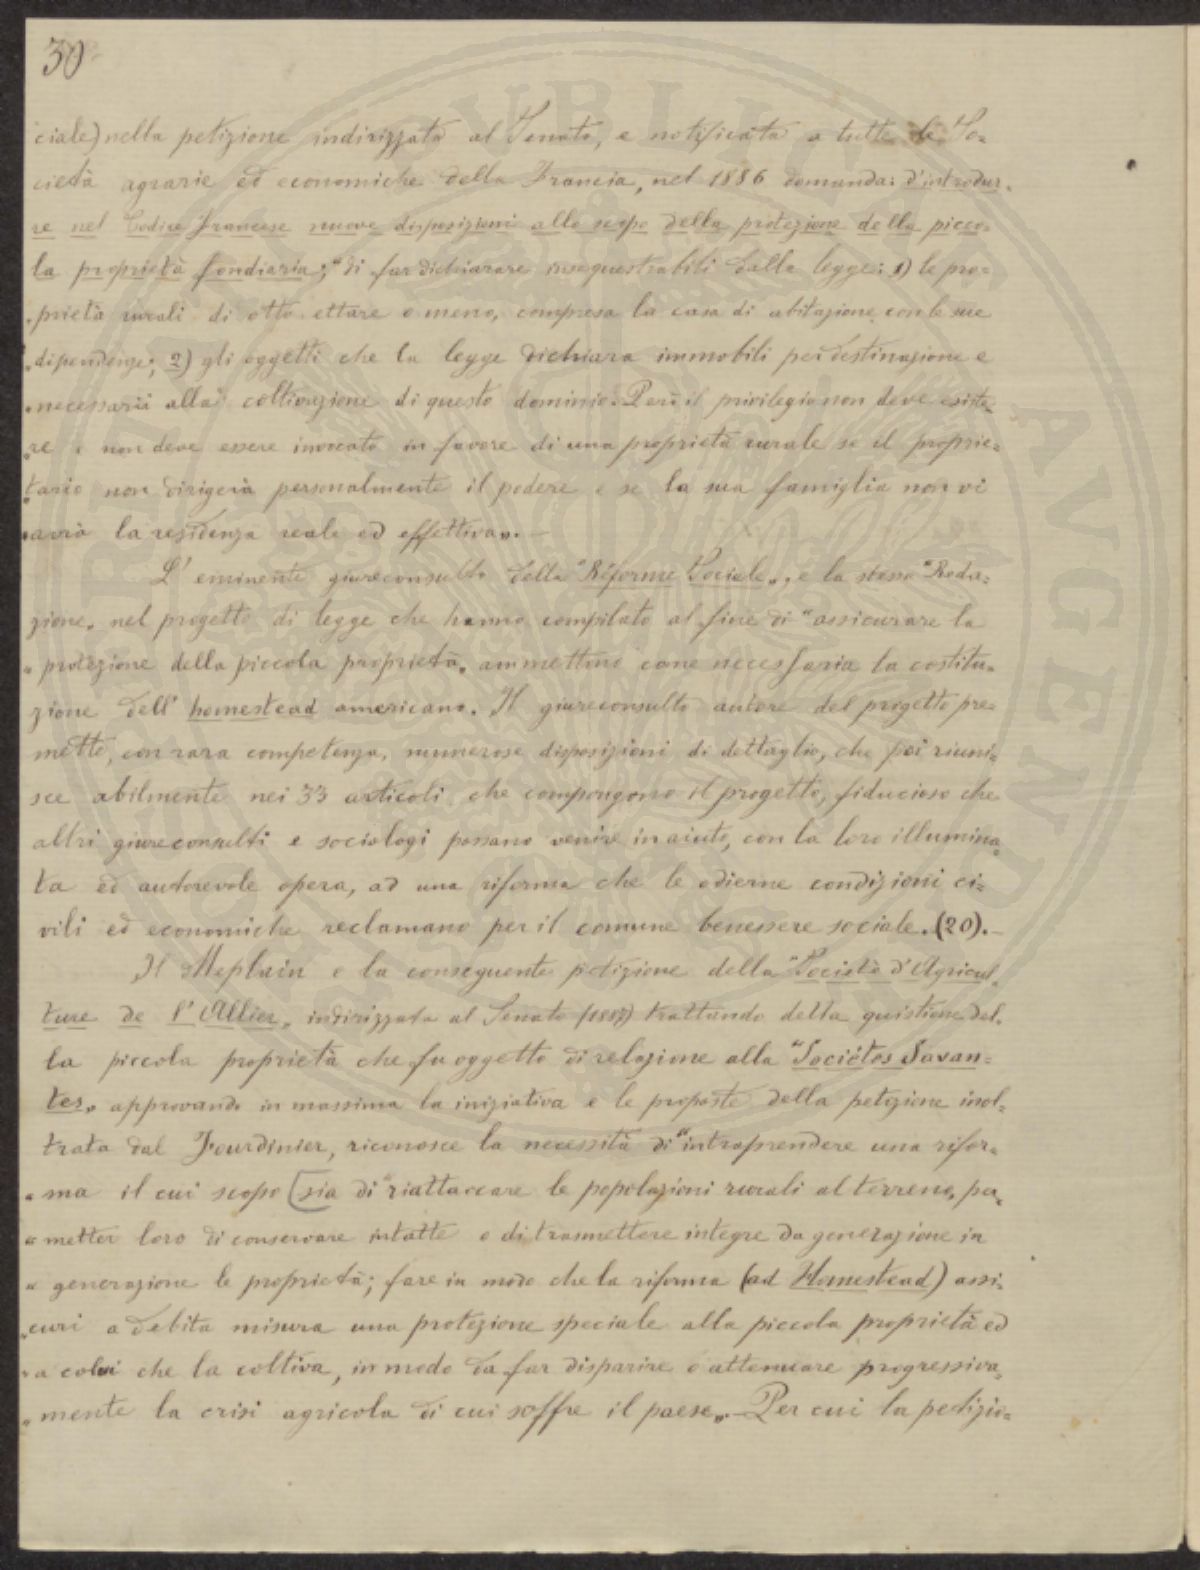 30
ciale) nella petizione indirizzata al Senato, e notificata a tutte le So=
cietà agrarie ed economiche della Francia, nel 1886 domanda: d'introdur=
re nel Codice francese nuove disposizioni allo scopo della protezione della picco=
la proprietà fondiaria; "di far dichiarare insequestrabili dalla legge: 1) le pro=
"prietà rurali di otto ettare o meno, compresa la casa di abitazione con le sue
"dipendenze; 2) gli oggetti che la legge dichiara immobili per destinazione e
"necessarii alla coltivazione di questo dominio. Però il privilegio non deve esiste=
"re e non deve essere invocato in favore di una proprietà rurale se il proprie=
"tario non dirigerà personalmente il podere e se la sua famiglia non vi
"avrà la residenza reale ed effettiva". —
L'eminente giureconsulto della "Réforme Sociale", e la stessa "Reda=
zione" nel progetto di legge che hanno compilato al fine di "assicurare la
"protezione della piccola proprietà" ammettono come necessaria la costitu=
zione dell'homestead americano. Il giureconsulto autore del progetto pre=
mette, con rara competenza, numerose disposizioni di dettaglio, che poi riuni=
sce abilmente nei 33 articoli che compongono il progetto, fiducioso che
altri giureconsulti e sociologi possano venire in aiuto, con la loro illumina=
ta ed autorevole opera, ad una riforma che le odierne condizioni ci=
vili ed economiche reclamano per il comune benessere sociale. (20). —
Il Meplain e la conseguente petizione della "Società d'Agricul=
ture de l'Allier" indirizzata al Senato (1887) trattando della quistione del=
la piccola proprietà che fu oggetto di relazione alla "Sociétes Savan=
tes" approvando in massima la iniziativa e le proposte della petizione inol=
trata dal Fourdinier, riconosce la necessità di "intraprendere una rifor=
"ma il cui scopo [sia di "riattaccare le popolazioni rurali al terreno, per=
"metter loro di conservare intatte e di trasmettere integre da generazione in
"generazione le proprietà; fare in modo che la riforma (ad Homestead) assi=
"curi a debita misura una protezione speciale alla piccola proprietà ed
"a colui che la coltiva, in modo da far disparire o attenuare progressiva=
"mente la crisi agricola di cui soffre il paese". — Per cui la petizio=